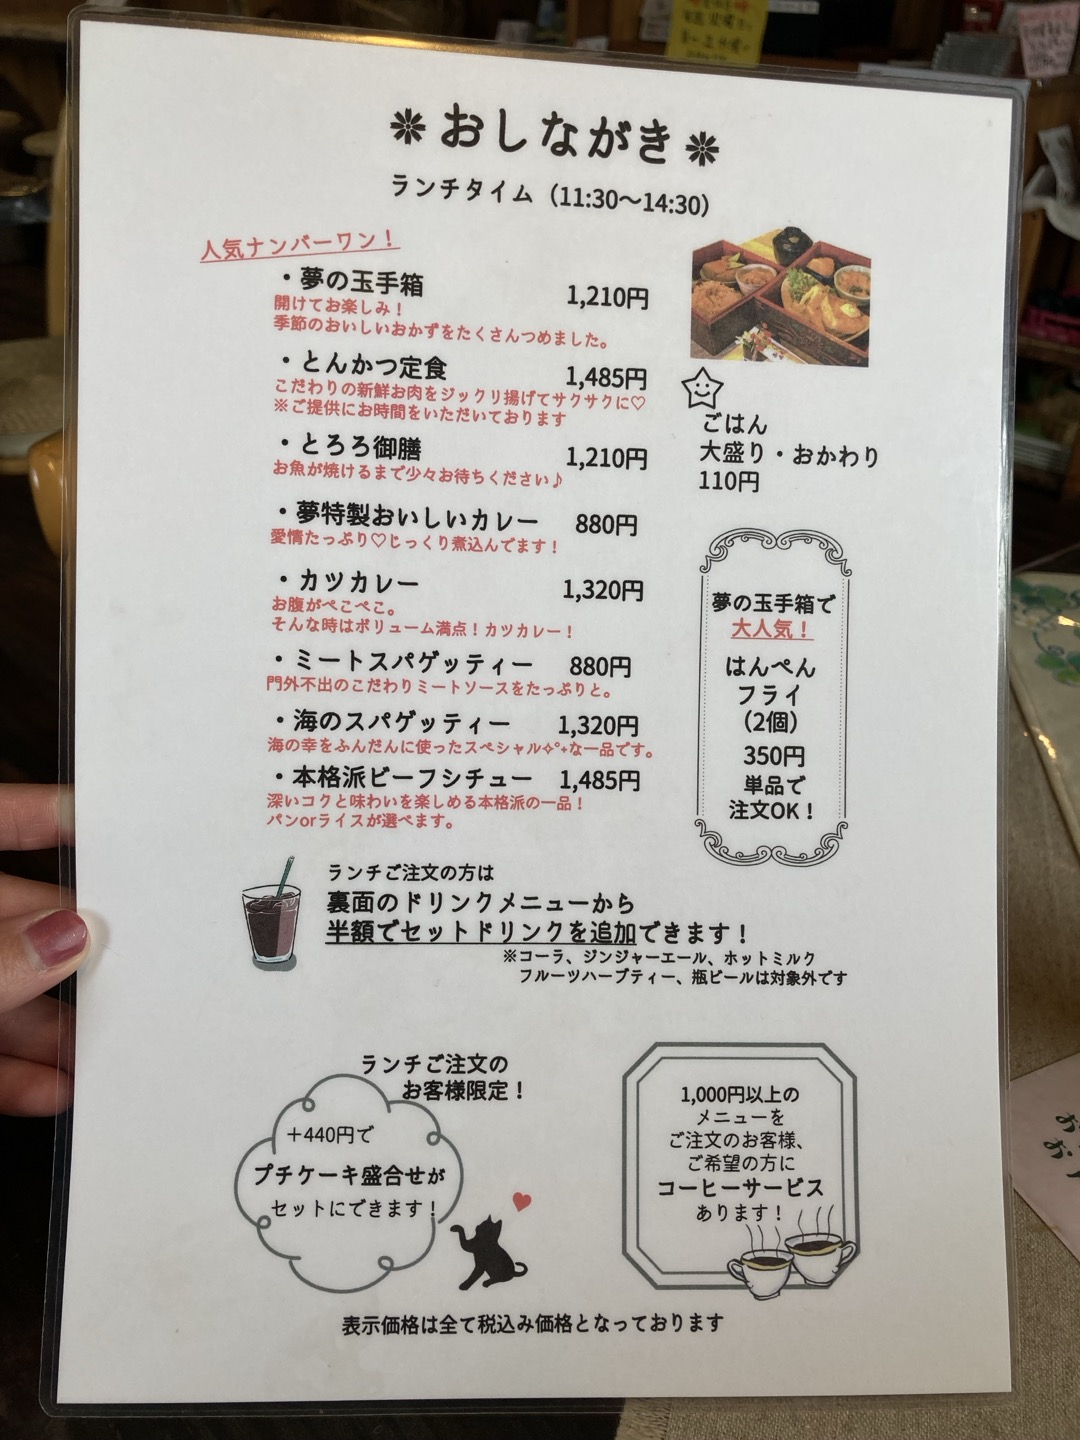 おしながき
ランチタイム（11:30～14:30）
人気ナンバーワン！
・夢の玉手箱 1,210円
開けてお楽しみ！
季節のおいしいおかずをたくさんつめました。
・とんかつ定食 1,485円
こだわりの新鮮お肉をジックリ揚げてサクサクに♡
※ご提供にお時間をいただいております
・とろろ御膳 1,210円
お魚が焼けるまで少々お待ちください♪
・夢特製おいしいカレー 880円
愛情たっぷり♡じっくり煮込んでます！
・カツカレー 1,320円
お腹がぺこぺこ。
そんな時はボリューム満点！カツカレー！
・ミートスパゲッティー 880円
門外不出のこだわりミートソースをたっぷりと。
・海のスパゲッティー 1,320円
海の幸をふんだんに使ったスペシャル✧°˖な一品です。
・本格派ビーフシチュー 1,485円
深いコクと味わいを楽しめる本格派の一品！
パンorライスが選べます。
ごはん
大盛り・おかわり
110円
夢の玉手箱で
大人気！
はんぺん
フライ
（2個）
350円
単品で
注文OK！
ランチご注文の方は
裏面のドリンクメニューから
半額でセットドリンクを追加できます！
※コーラ、ジンジャーエール、ホットミルク
フルーツハーブティー、瓶ビールは対象外です
ランチご注文の
お客様限定！
＋440円で
プチケーキ盛合せが
セットにできます！
1,000円以上の
メニューを
ご注文のお客様、
ご希望の方に
コーヒーサービス
あります！
表示価格は全て税込み価格となっております